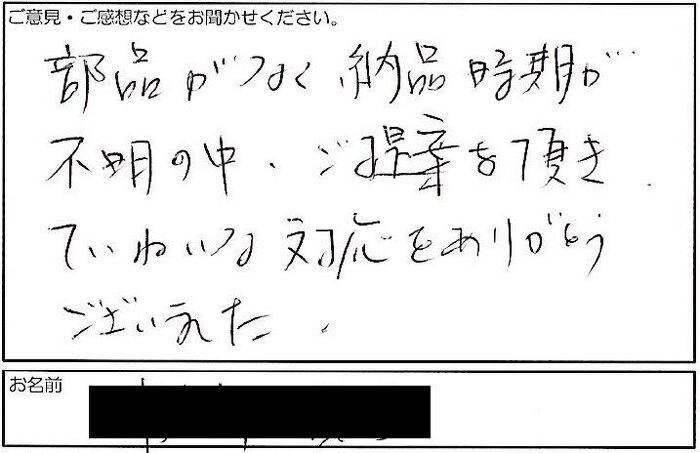 ご意見・ご感想などをお聞かせください。
部品がなく納品時期が
不明の中、ご提案を頂き
ていねいな対応をありがとう
ございました.
お名前